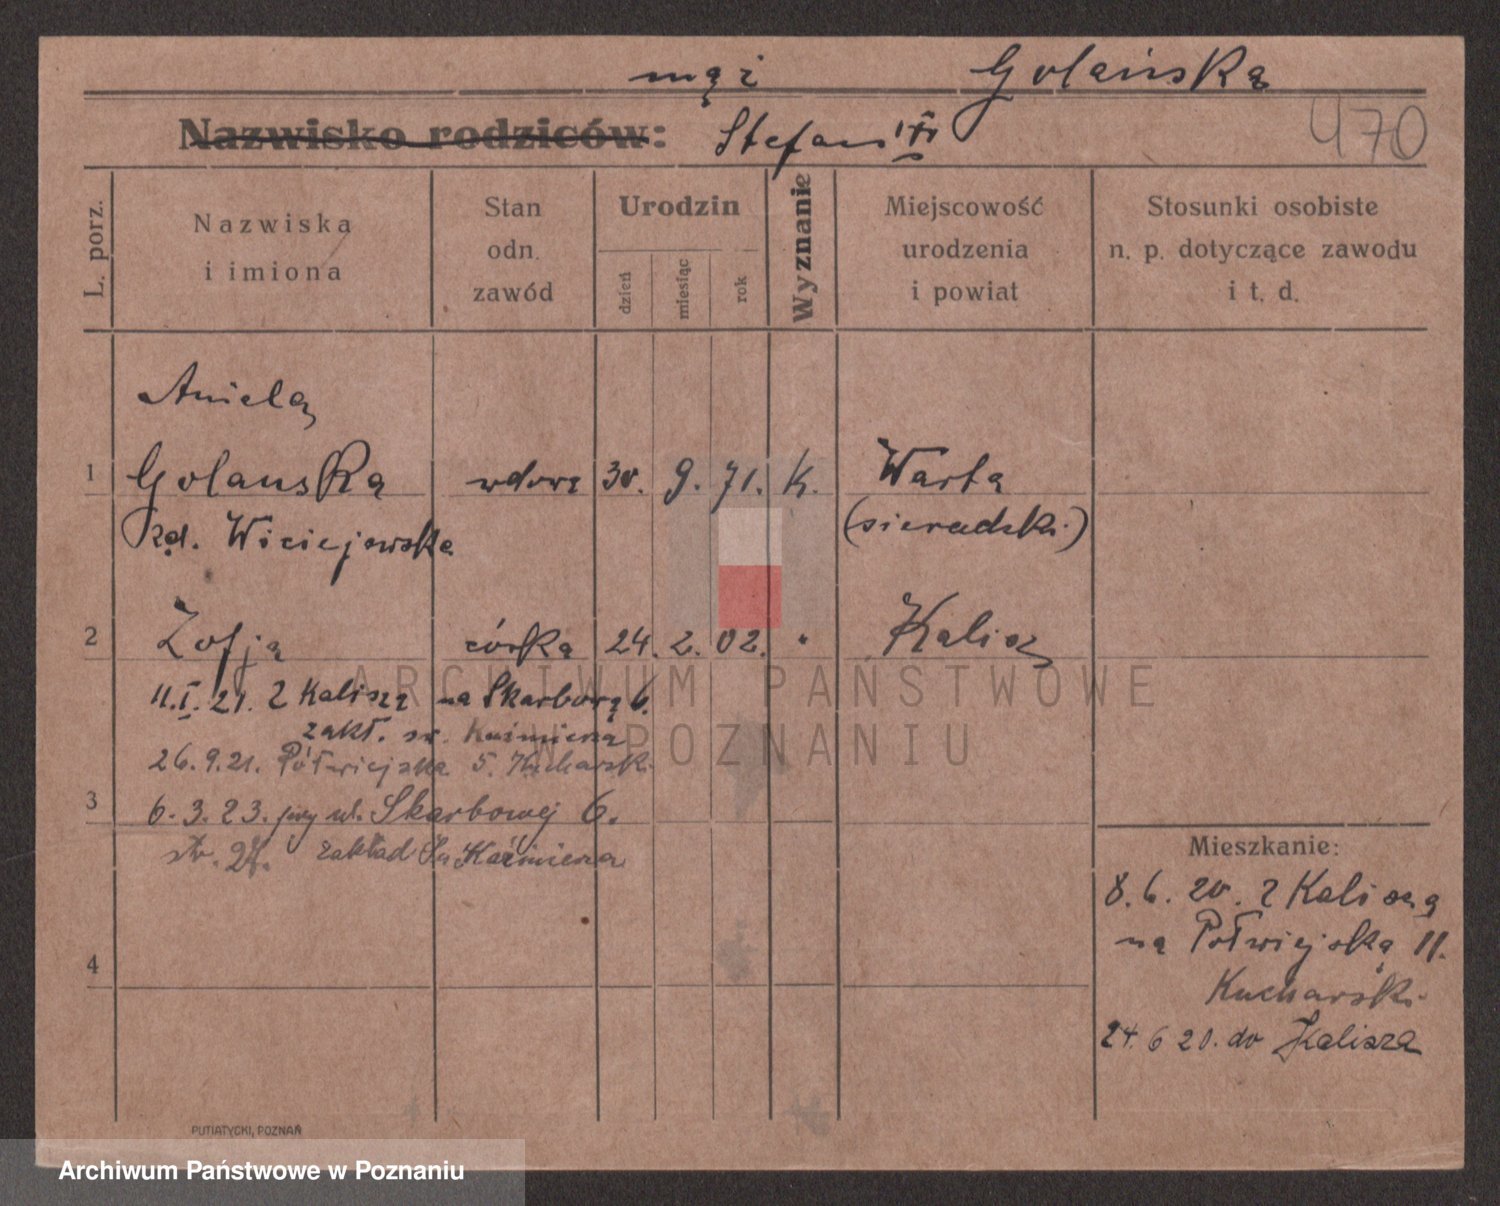 mąż Golańska
Nazwisko rodziców: Stefan
470
L. porz.
Nazwiska i imiona
Stan odn. zawód
Urodzin
dzień
miesiąc
rok
Wyznanie
Miejscowość urodzenia i powiat
Stosunki osobiste n. p. dotyczące zawodu i t. d.
Aniela
1 Golanska wdowa 30. 9. 71. K. Warta
zd. Wiciejewska (sieradzki)
2 Zofja córka 24. 2. 02. " Kalisz
11.I.21. z Kalisza na Skarbową 6.
zakł. św. Kaźmierza
26.9.21. Półwiejska 5. Kucharski
3 6.3.23. przy ul. Skarbowej 6.
str. 27. zakład Św Kaźmierza
4
Mieszkanie:
8.6.20. z Kalisza
na Półwiejską 11.
Kucharski
24.6 20. do Kalisza
PUTIATYCKI, POZNAŃ
ARCHIWUM PAŃSTWOWE
W POZNANIU
Archiwum Państwowe w Poznaniu